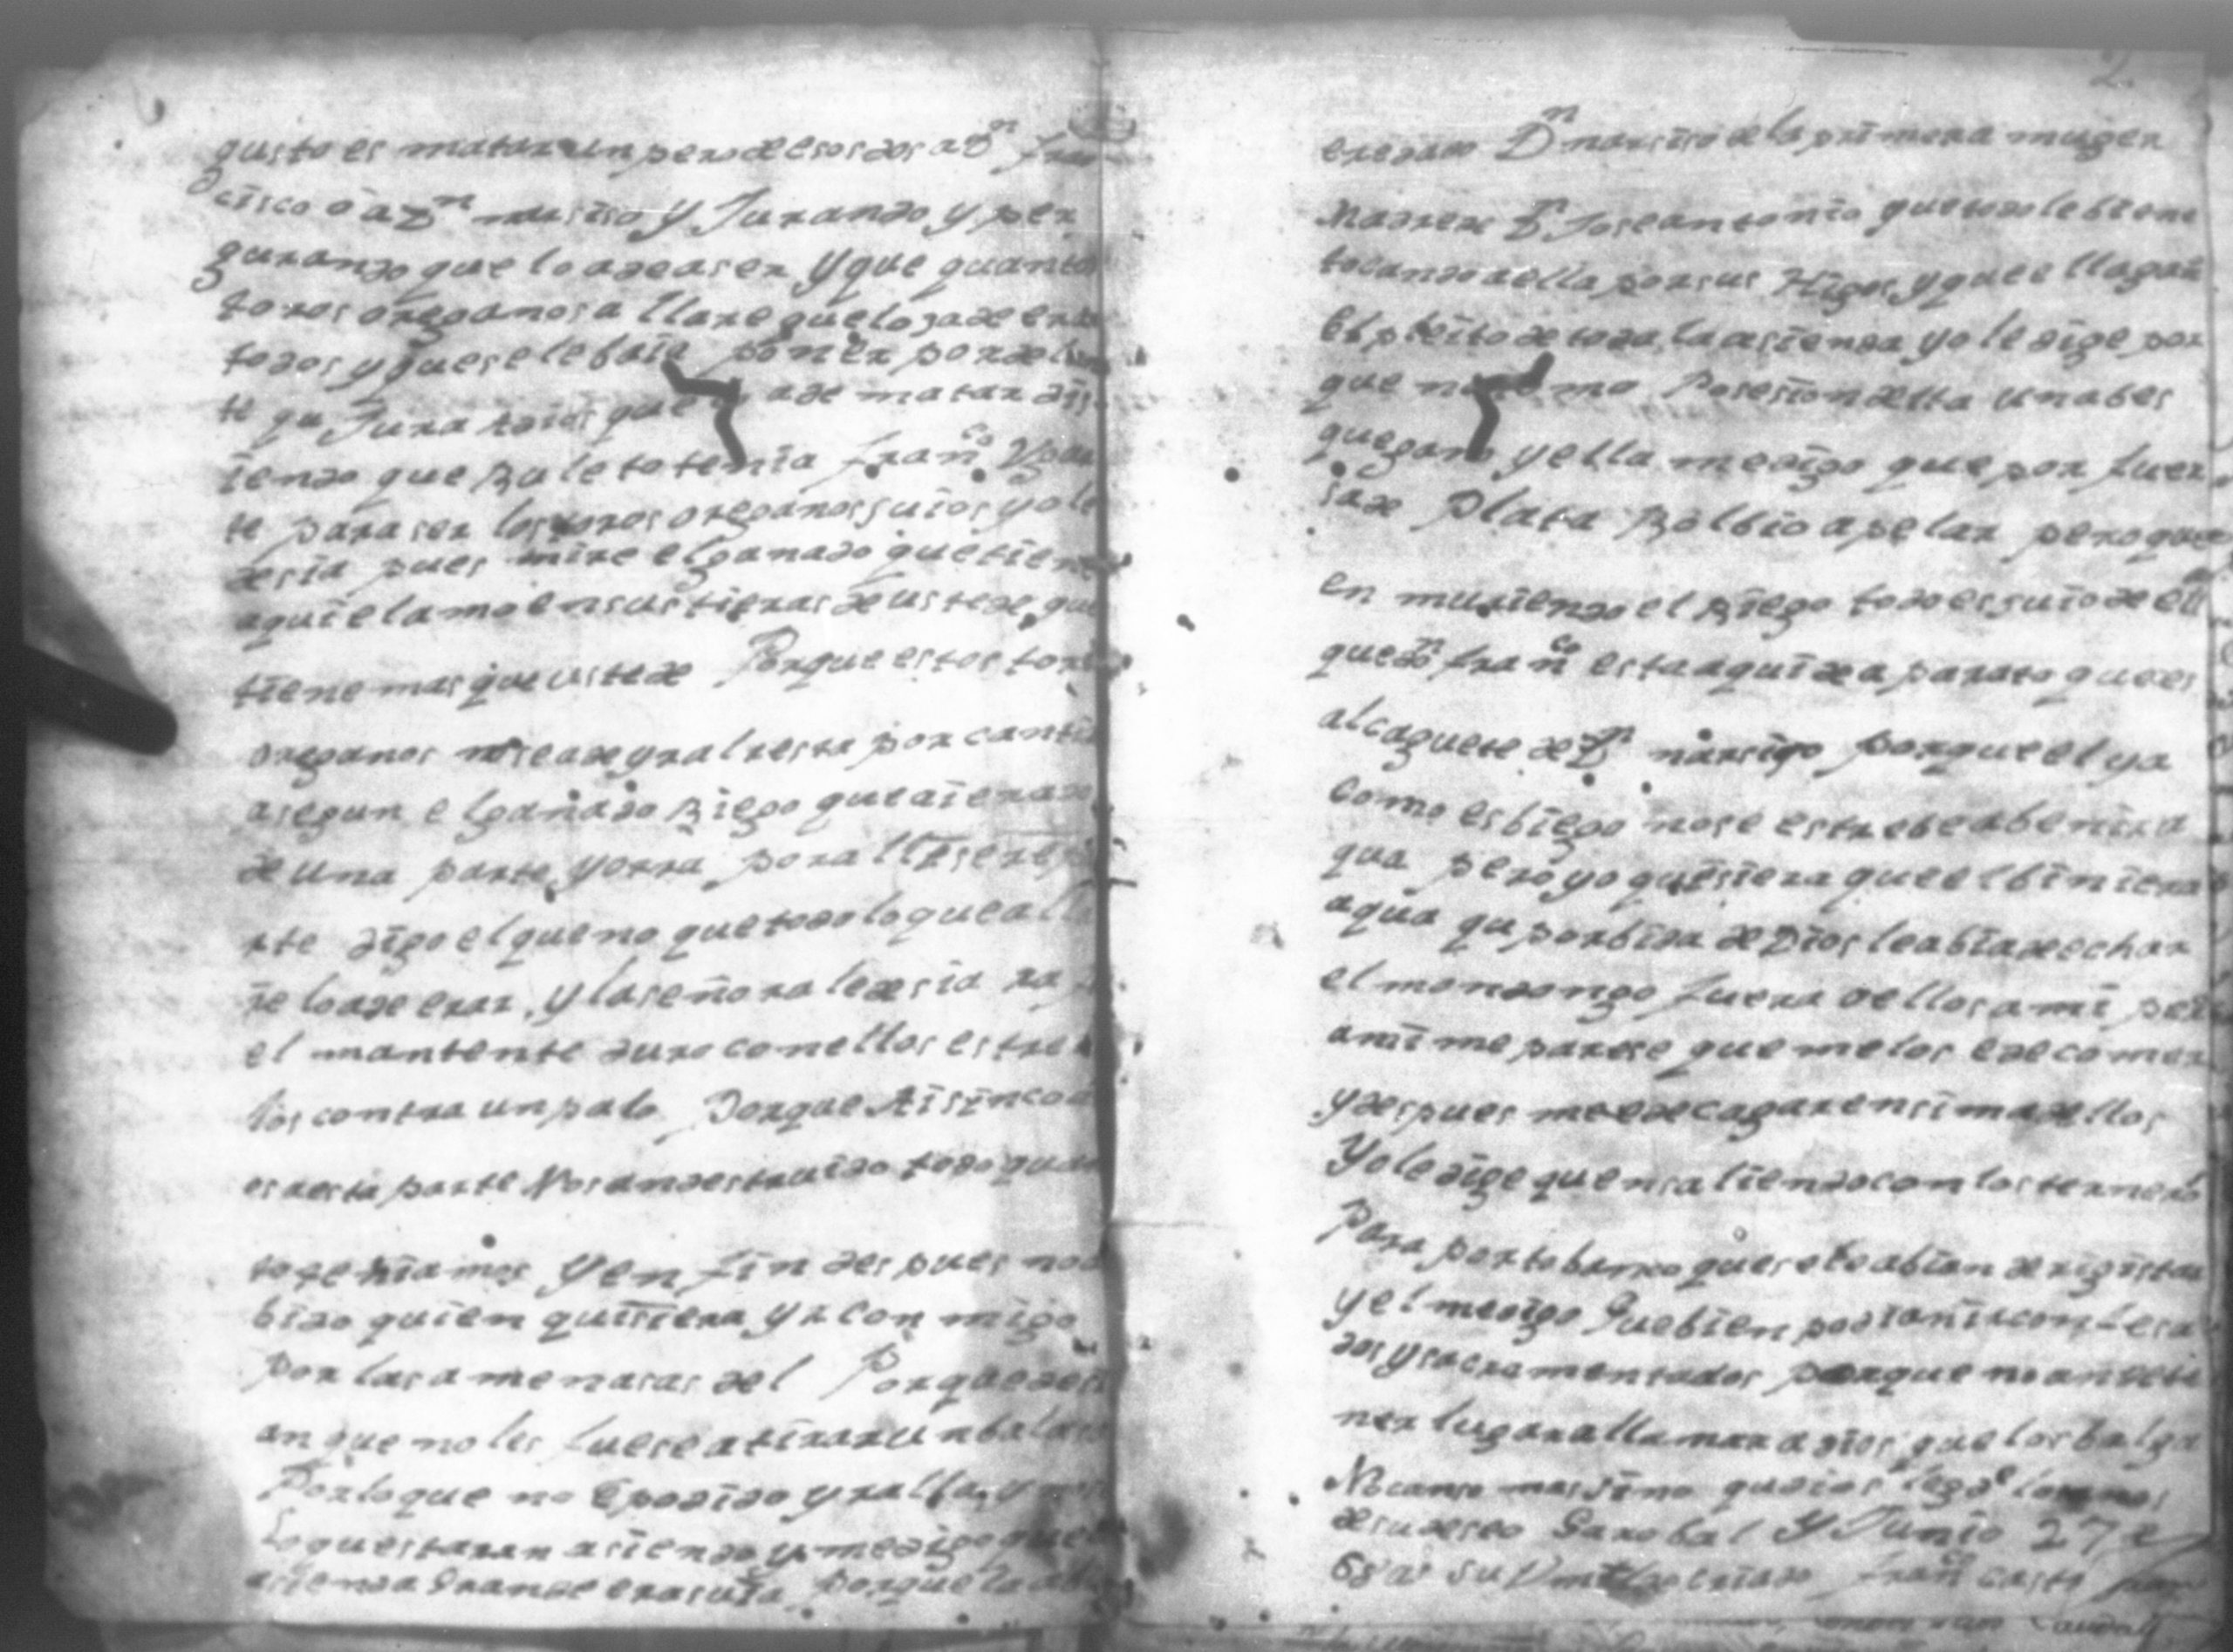 gusto es matar un pero de esos dos a Dn fran
cisco ô a Dn narsiso y Jurando y per
gurando que lo a de aser y que quantos
toros oregoanos a llare que lo za de erar
todos y que se le baie poner por delan
te qu Jura a dios que a de matar dis
iendo que Bu leto tenia franco
te para ser los toros oregoanos suios yo le
desia pues mire el ganado que tiene
aqui el amo en sus tieras de ustede que
tiene mas que ustede Porque estos toros
oreganos no se a de yr al resta por canti
a segun el ganado Biego que aieran
de una parte y otra por alli se rep
rte digo el que no que todo lo que alla
re lo a de erar, y la señora le desia ra
el mantente duro con ellos estre
los contra un palo Porque Aisinco
es a esta parte Nos an destruido todo quan
to teniamos Y en fin des pues no a
bido quien quisiera yr con migo
Por las amenasas del Porque desi
an que no les fuese a tirar un balaso
Por lo que no E podido yr alla y
Lo questaran asiendo y me digo que
asienda Grande era suia, porque la a
2
eredado Dn narsiso de la primera muger
Madre de Dn Jose antonio que todo le biene
tocando a ella por sus Higos y que ella gañ
El pleito de toda la asienda yo le dige por
que no tomo Posesion della una bes
que gano y ella me digo que por fuer
sa de Plata Bolbio apelar pero que
en muriendo el Biego todo es suio de ell
que dn franco esta aqui de a parato que es
alcaguete de Dn narsigo porque el ya
como es biego no se estrebe a benir a
qua pero yo quisiera que el biniera
aqua qu por bida de Dios le abia de echar
el mondongo fuera o ellos a mi per
a mi me parese que me los e de comer
y despues me e de cagar ensima de llos
Yo le dige quen saliendo con los terneros
Para portobanco que se le abian de rigistrar
y el me digo Que bien podian ir confesa
dos y sacramentados porque no an de te
ner lugar a llamar a dios que los balga
No canso mas sino qu dios lege los
de su deseo Garobal Y Junio 27 de
68 as su Vmilde criado franco casto